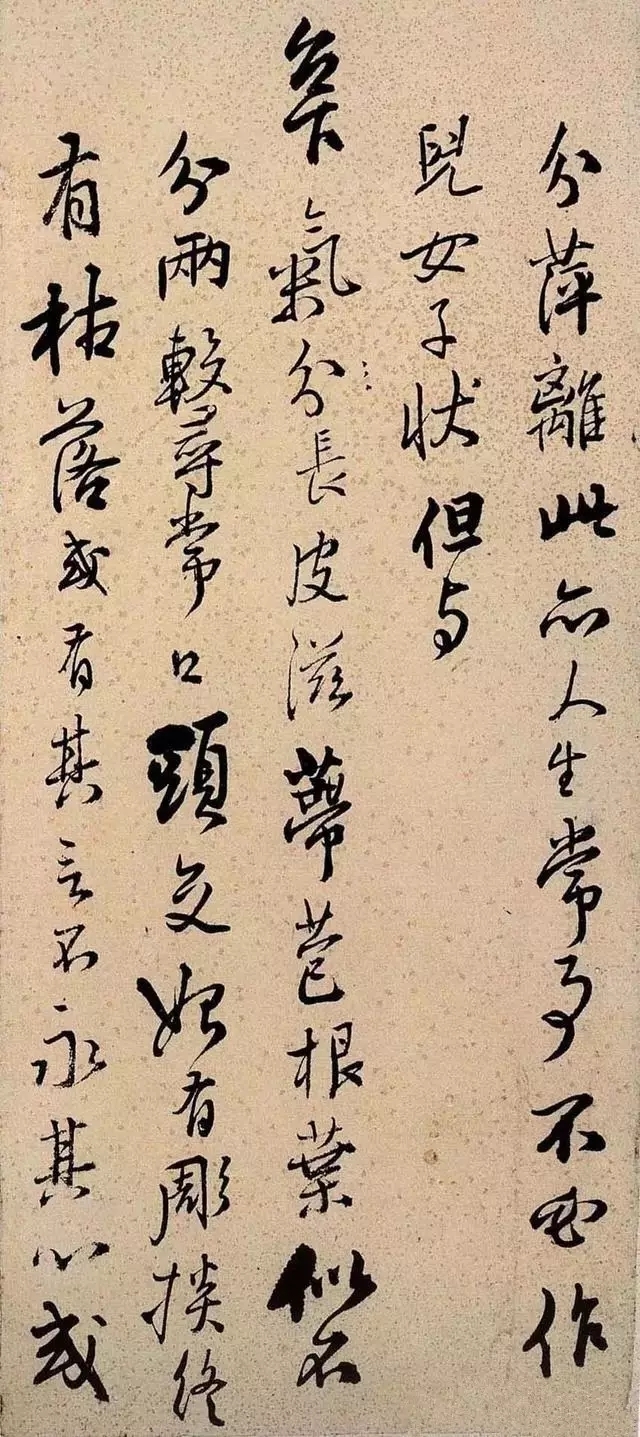 分萍離此亦人生常事不必作
兒女子狀但与
台下氣分長皮滋蔕苞根葉似不
分兩較尋常口頭交始有彫掞終
有枯落或有其言不永其心或